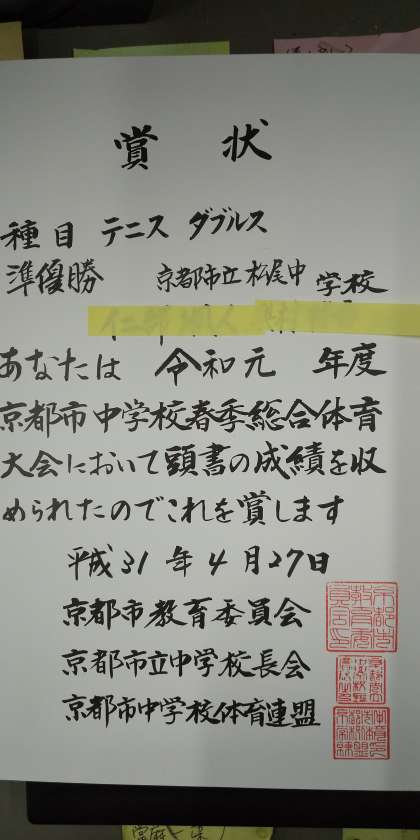 賞 状
種目 テニス ダブルス
準優勝 京都市立松尾中学校
あなたは 令和元 年度
京都市中学校春季総合体育
大会において頭書の成績を収
められたのでこれを賞します
平成31年4月27日
京都市教育委員会
京都市立中学校長会
京都市中学校体育連盟